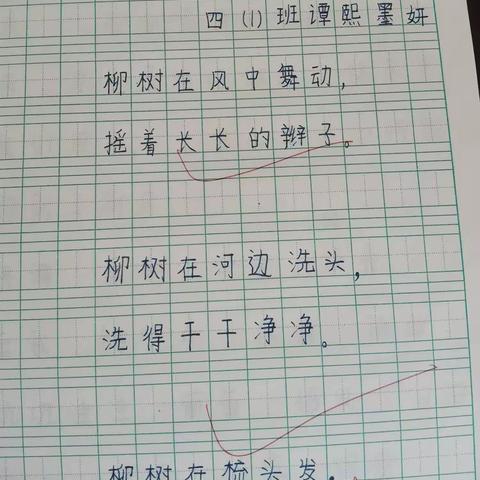 四（1）班谭熙墨妍
柳树在风中舞动，
摇着长长的辫子。
柳树在河边洗头，
洗得干干净净。
柳树在梳头发，